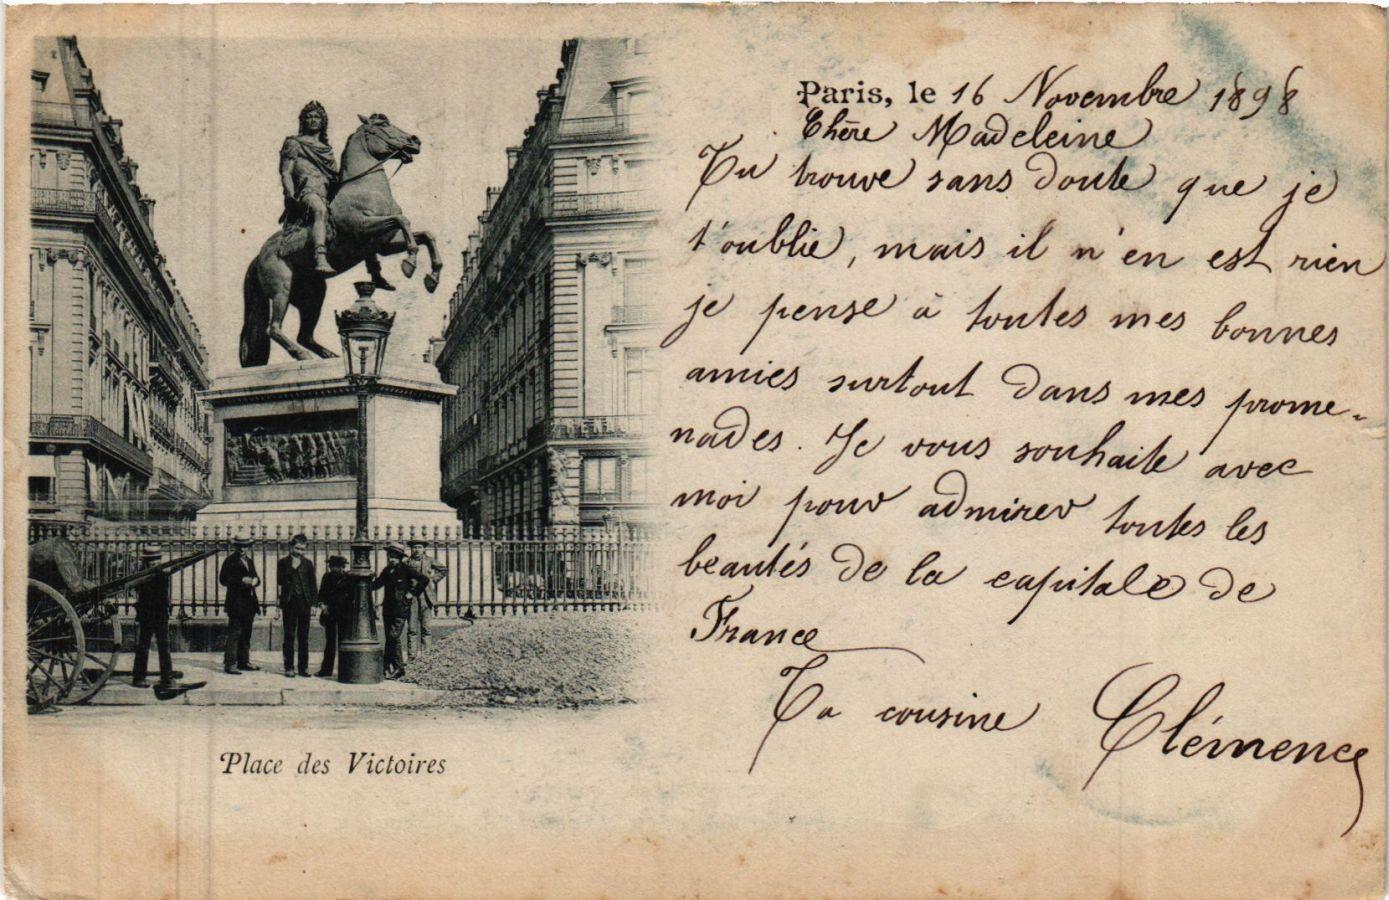 Paris, le 16 Novembre 1898
Chère Madeleine
Tu trouve sans doute que je
t'oublie, mais il n'en est rien
je pense à toutes mes bonnes
amies surtout dans mes prome-
nades. Je vous souhaite avec
moi pour admirer toutes les
beautés de la capitale de
France
Ta cousine Clémence
Place des Victoires